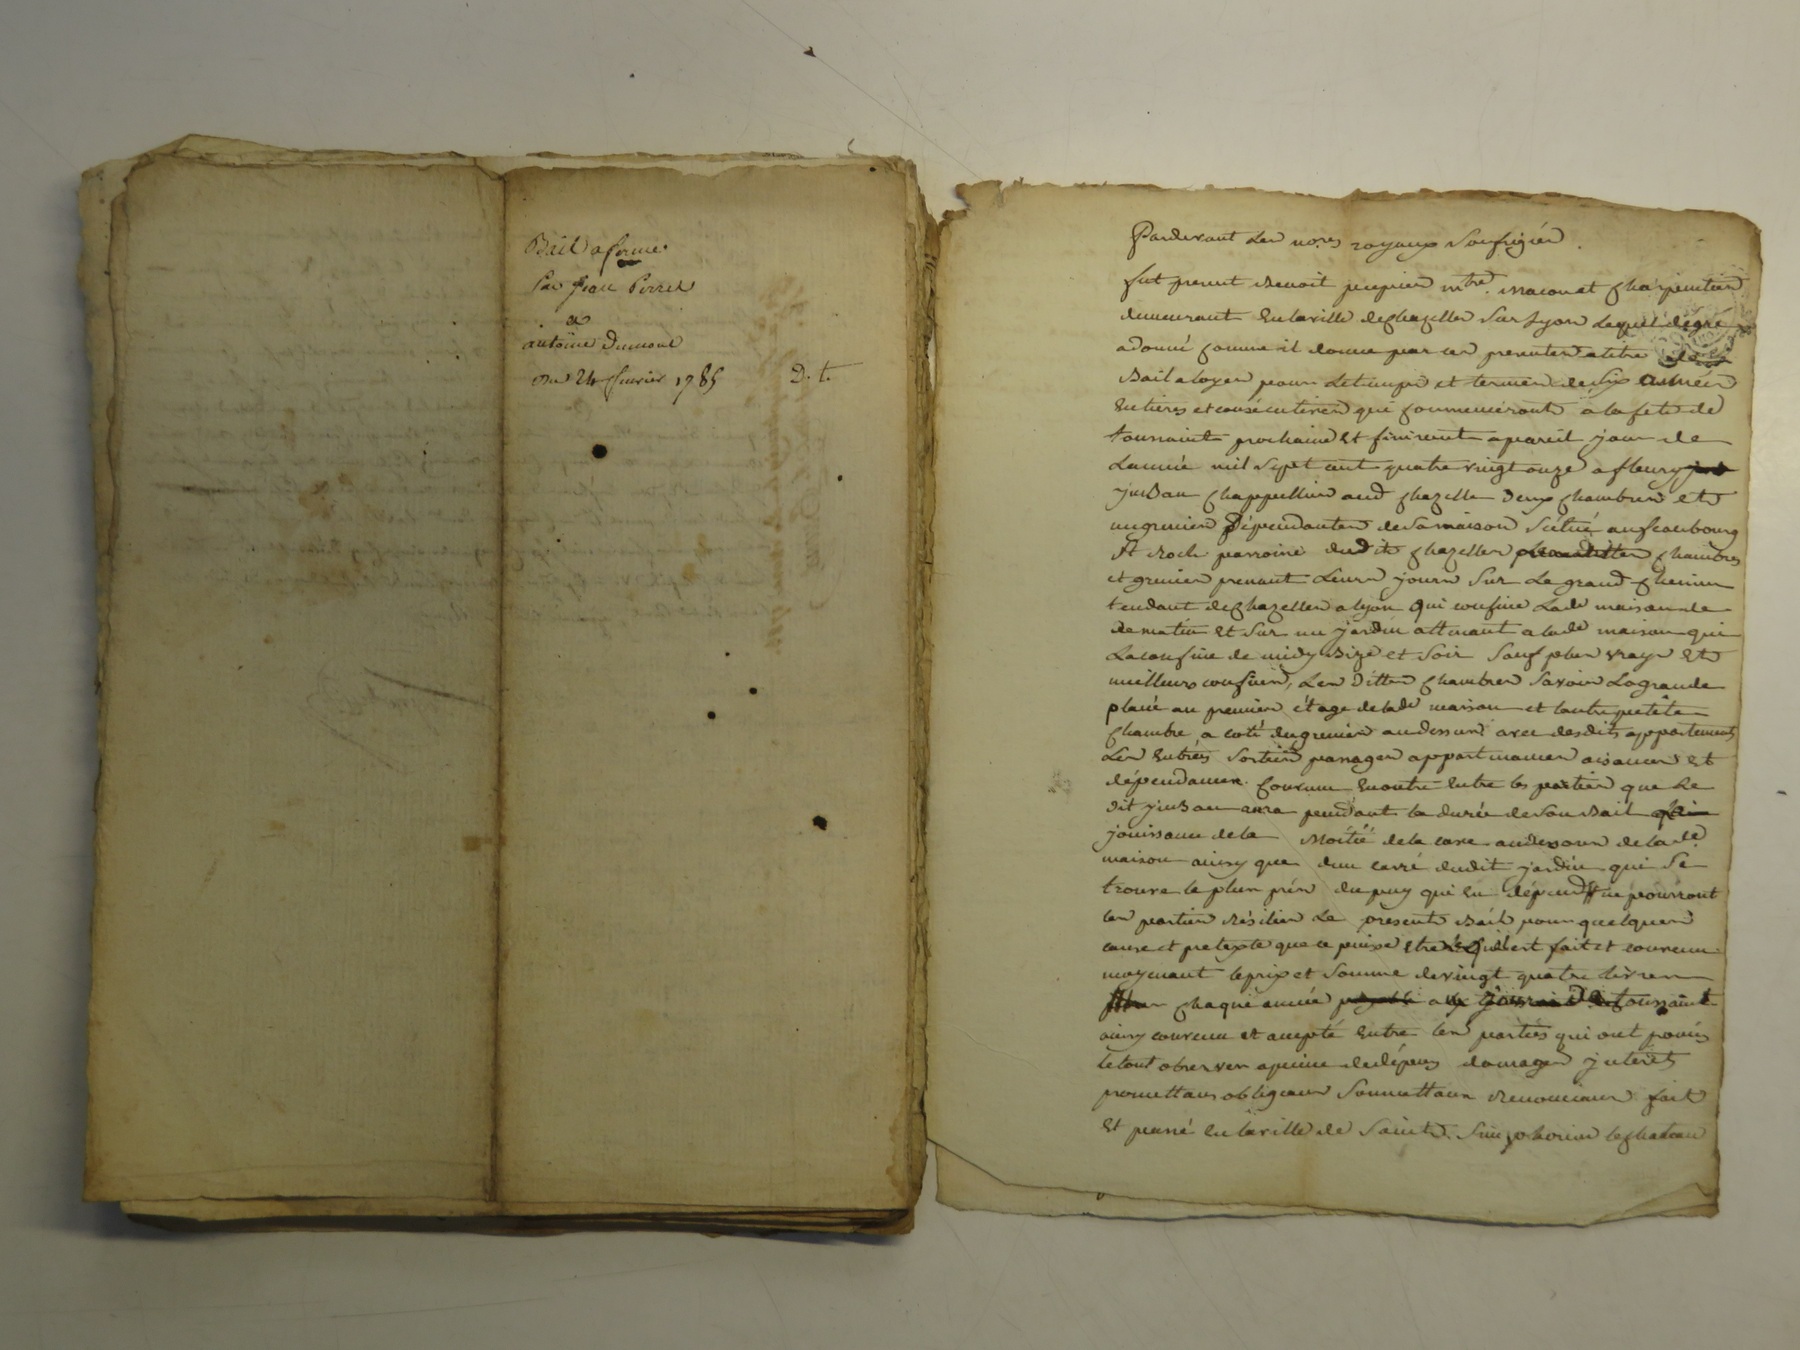 Bail a ferme
Par Jean Perret
a
antoine Dumont
Du 24 fevrier 1785 D. t.
Pardevant Les no.res royaux Soussignés.
fut present Benoit m.tre Macon et Charpentier
demeurant En la ville de Chazelles Sur Lyon Lequel de gré
a donné Comme il donne par ces presentes a titre de
Bail a loyer pour Le temps et termes de Six années
Entieres et consécutives qui Commenceront a la fete de
toussaint prochaine Et finiront a pareil jour de
L'année mil Sept cent quatre vingt onze a fleury
chappellier aud Chazelle deux Chambres et
un grenier Dépendantes de Sa maison Scitué au feaubourg
St Roch parroisse dudit Chazelles Chambres
et grenier prenant Leurs jours Sur Le grand Chemin
tendant de Chazelles a Lyon qui confine Lad.e maison de
de matin Et Sur un jardin attenant a lad.e maison qui
La confine de midy Bize et Soir Sauf plus vrays Et
meilleurs confins, Les dittes Chambres Savoir La grande
placé au premier étage de lad.e maison et l'autre petite
Chambre a coté du grenier au dessus avec desdits appartements
Les Entrées Sorties passages appartenances aisances Et
dépendances. Convenu En outre Entre les parties que Le
dit aura pendant la durée de Son Bail
jouissance de la Moitié de la cave au dessous de la d.e
maison ainsy que d'un carré dudit jardin qui Se
trouve le plus près du puy qui En dépend ne pourront
les parties Résilier Le present Bail pour quelques
cause et pretexte que ce puisse Etre Est fait et convenu
moyenant le prix et Somme de vingt quatre Livres
Chaque année a toussaint
ainsy convenu et accepté Entre les parties qui ont promis
le tout observer a peine de dépens domages jnterets
promettans obligeans Soumettans Renoncians fait
Et passé En la ville de Saint Simphorien le Chateau